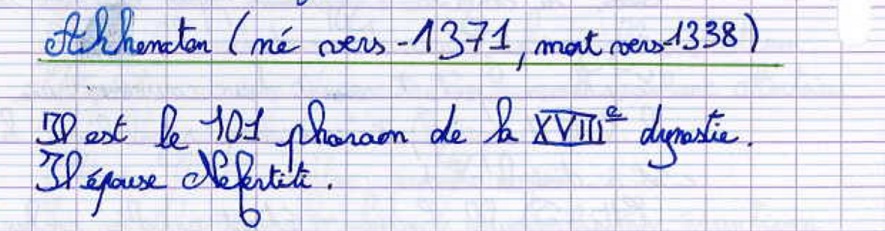 Akhenaton (né vers -1371, mort vers -1338)
Il est le 101 pharaon de la XVIIIe dynastie.
Il épouse Nefertiti.